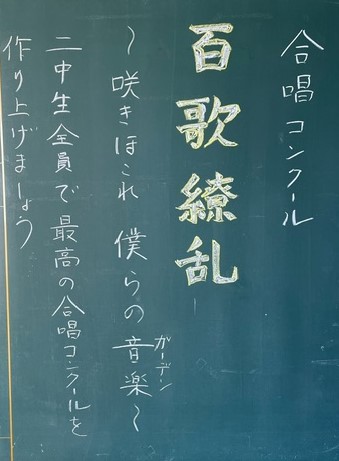 合唱コンクール
百歌繚乱
～咲きほこれ 僕らの音楽～
ガーデン
二中生全員で最高の合唱コンクールを
作り上げましょう